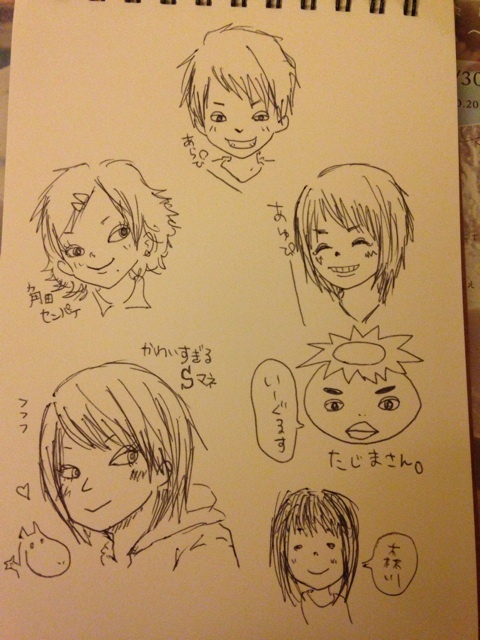 あらぴ
あゆぴ
角田
センパイ
かわいすぎる
Sマネ
いーぐるす
たじまさん。
フフフ
森川
/30
0.20